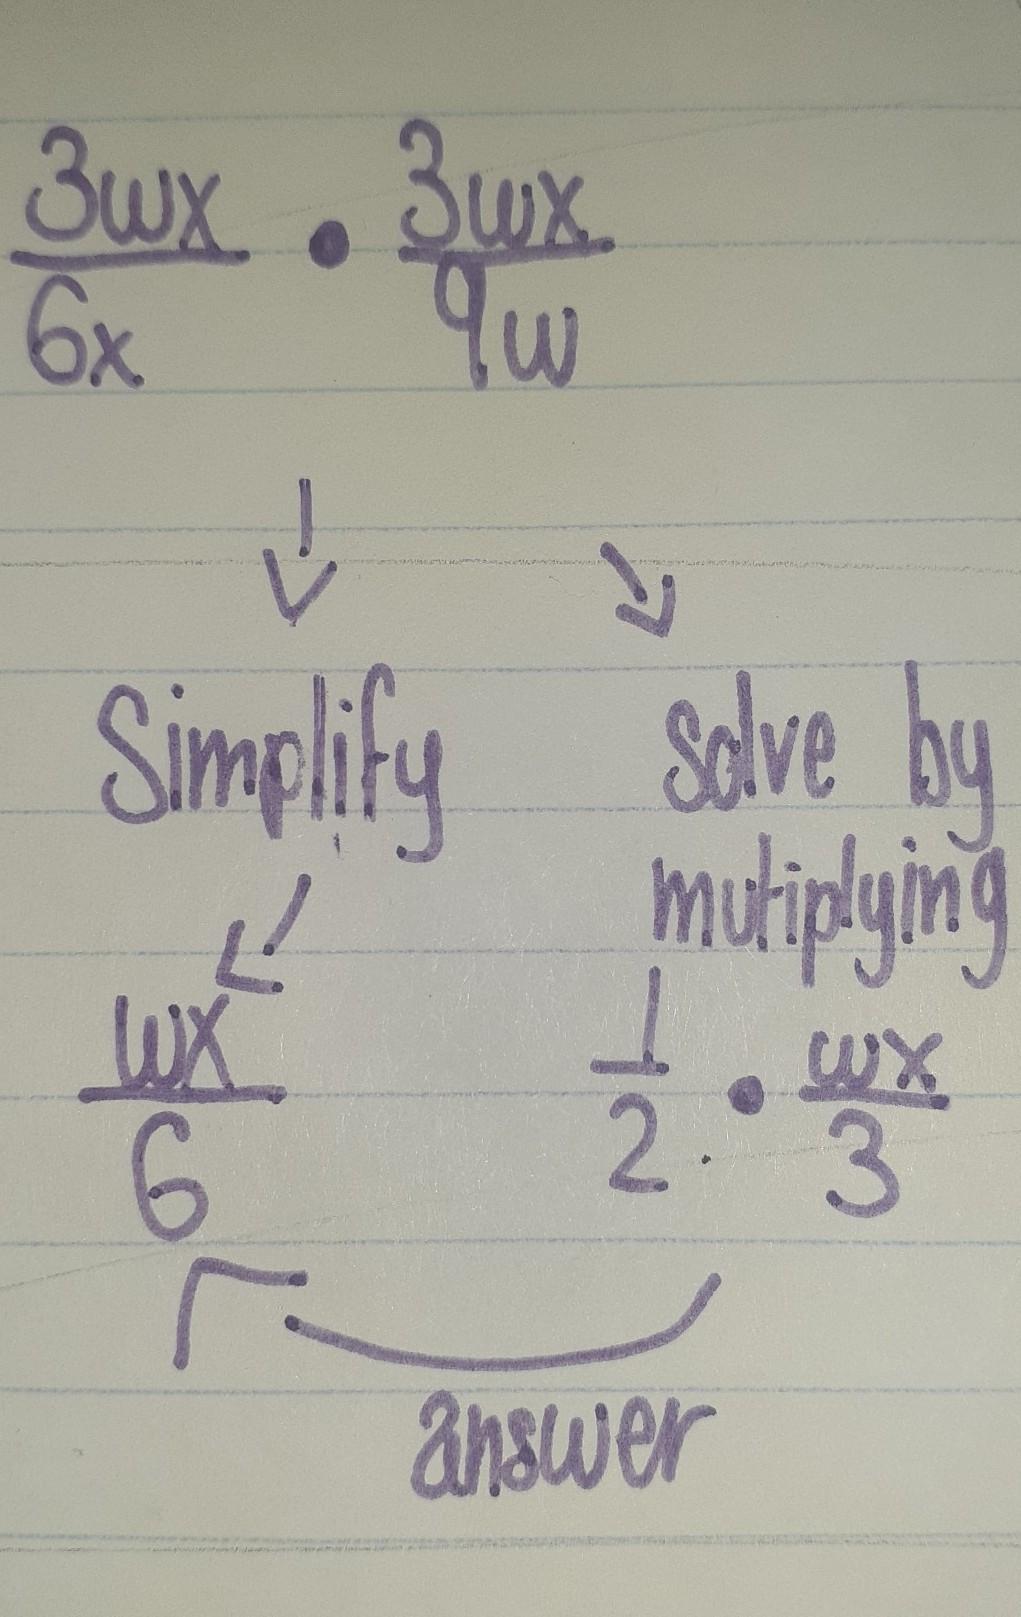 3wx/6x • 3wx/9w
Simplify
solve by
mutiplying
wx/6
1/2 • wx/3
answer